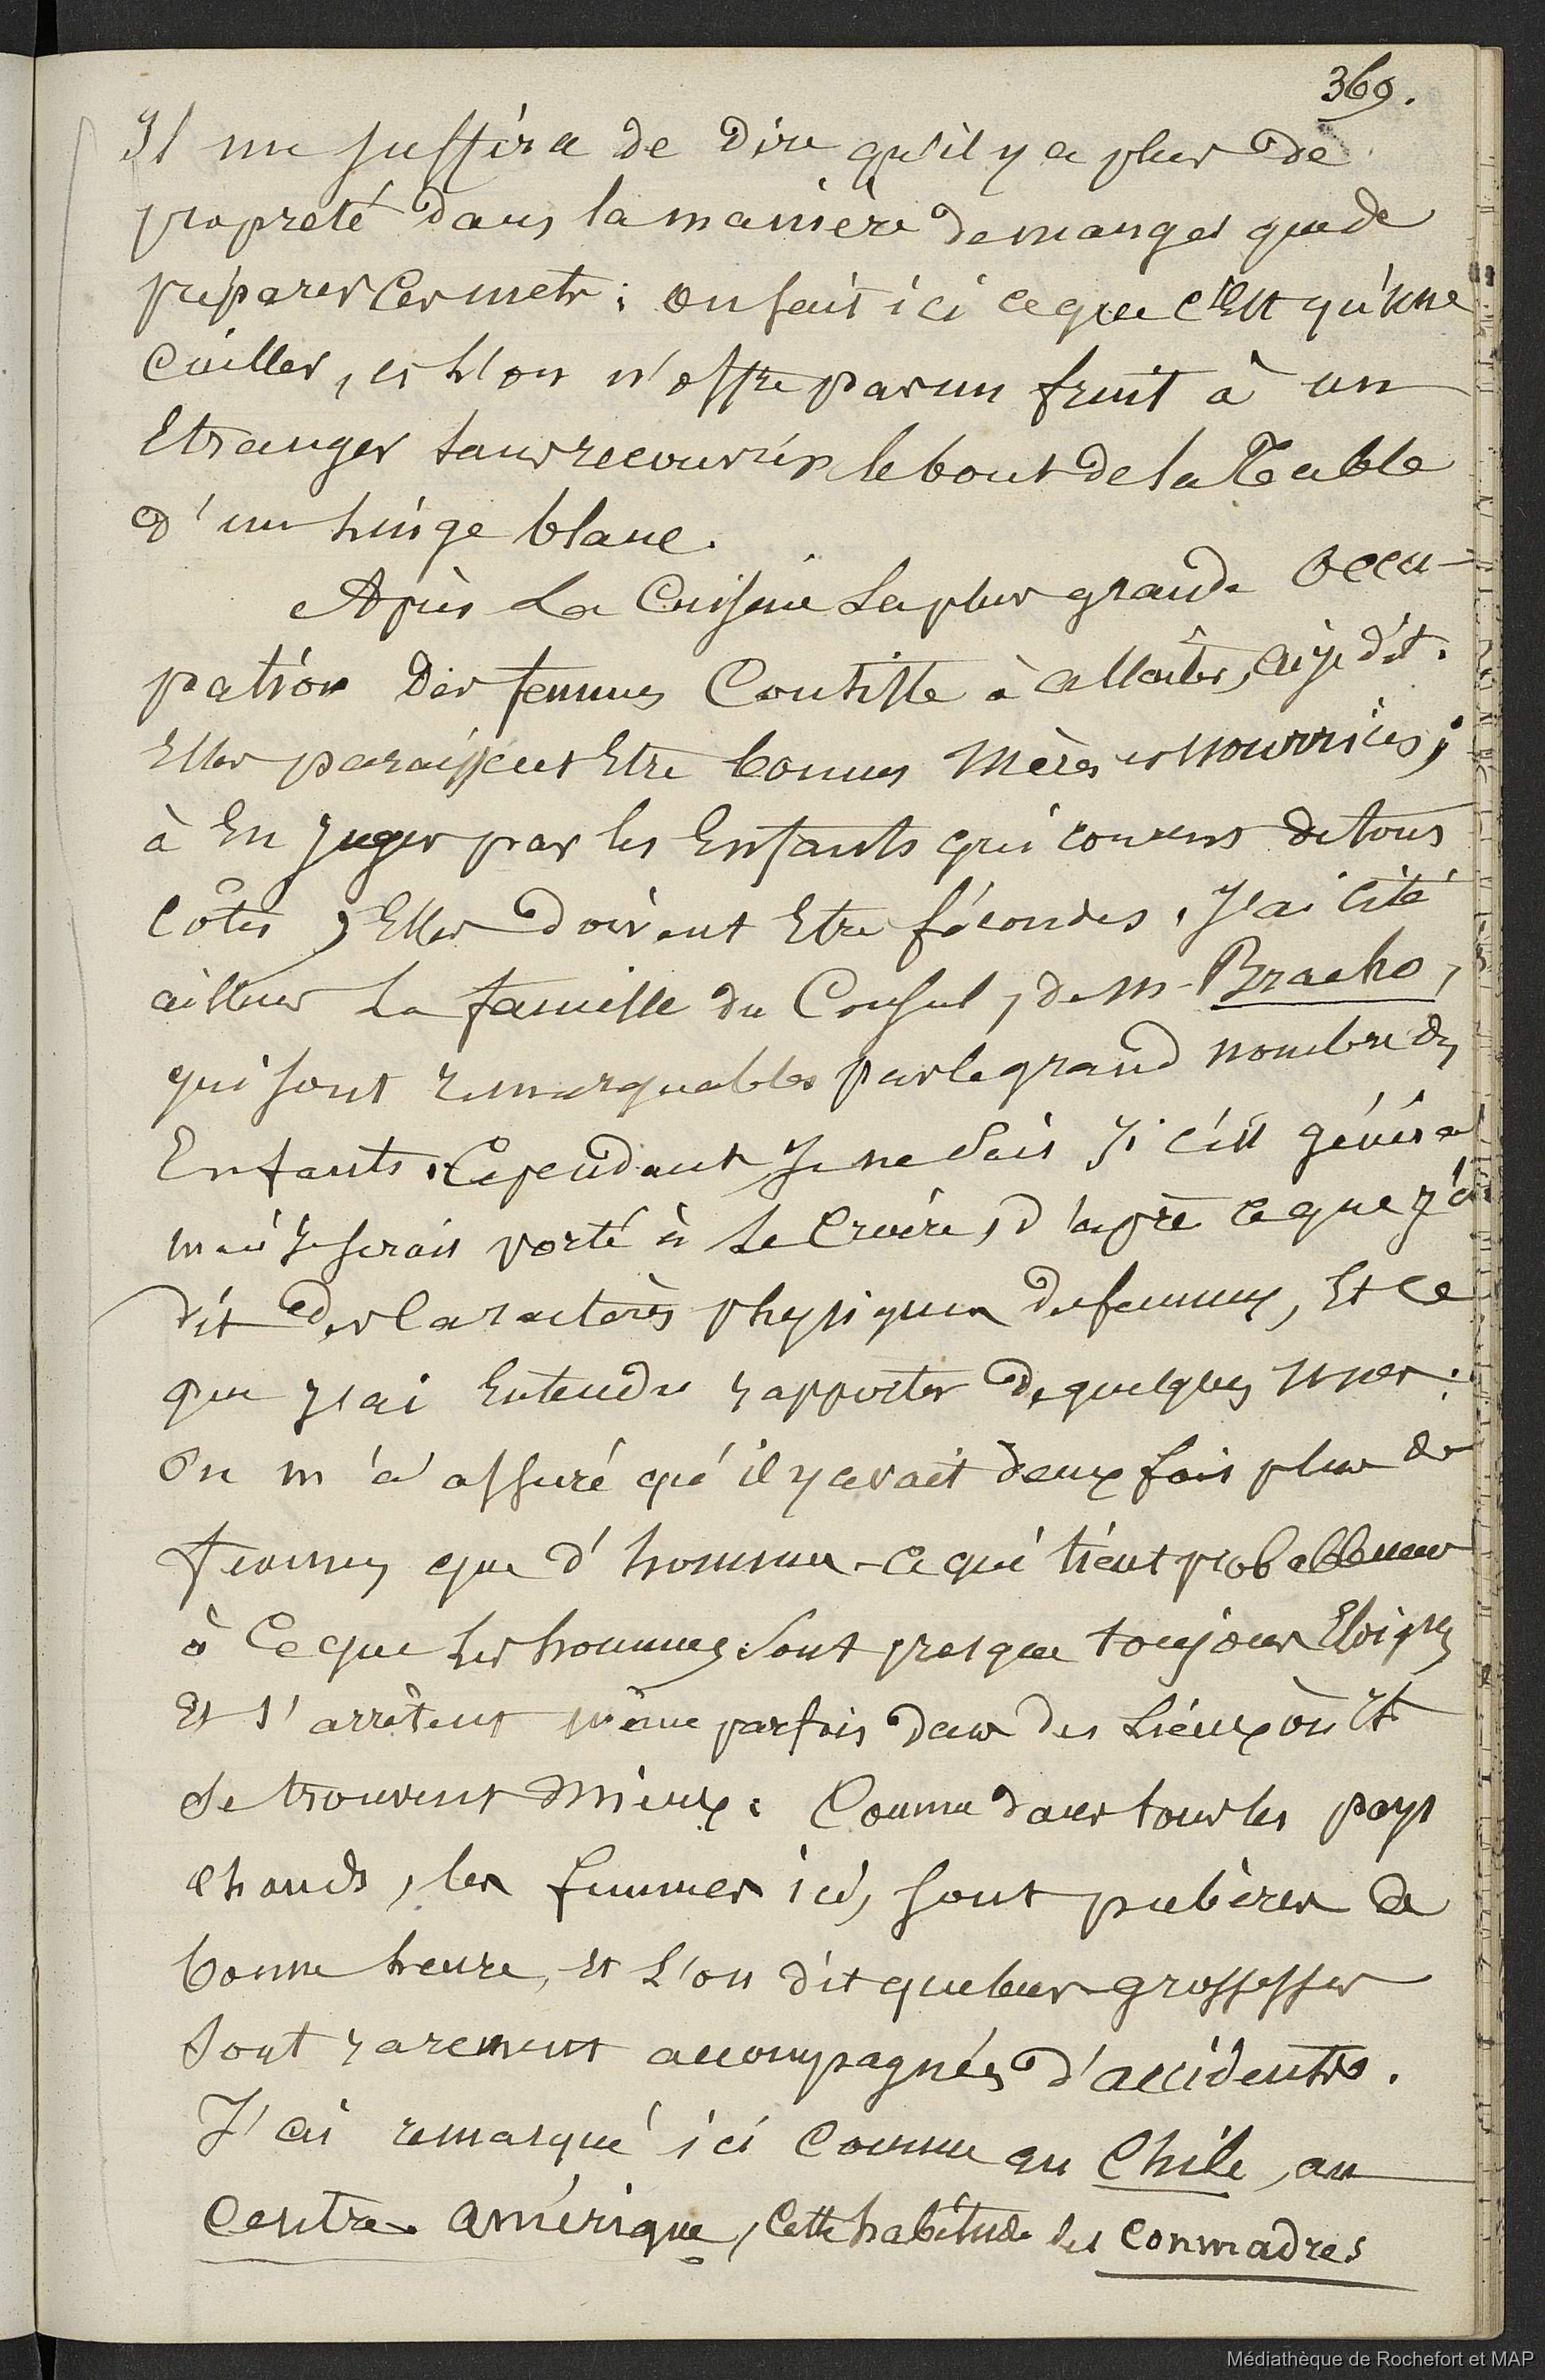 369.
Il me suffira de dire qu'il y a plus de
propreté dans la manière de manger que de
préparer ces mets : on sait ici ce que c'Est qu'une
Cuiller, et l'on n'offre pas un fruit à un
Etranger sans recouvrir le bout de la Table
d'un linge blanc.
Après La Cuisine La plus grande Occu-
pation Des femmes Consiste à allaiter, ai-je dit.
Elles paraissent Etre bonnes Mères et nourrices ;
à En juger par les Enfants qui courent de tous
Côtés, Elles doivent Etre fécondes. J'ai cité
ailleurs La famille du Consul, de M. Bracho,
qui sont remarquables par le grand nombre des
Enfants. Cependant Je ne Sais Si c'est général
mais Je serais porté à Le Croire, d'après ce que j'ai
dit des Caractères physiques des femmes, Et Ce
que j'ai Entendu rapporter de quelques unes :
On m'a assuré qu'il y avait deux fois plus de
femmes que d'hommes - Ce qui tient probablement
à Ce que Les hommes Sont presque toujours Eloignés
Et s'arrêtent même parfois dans des Lieux où ils
Se trouvent Mieux : Comme dans tous les pays
chauds, les femmes ici, sont pubères de
bonne heure, Et L'on dit que leurs grossesses
Sont rarement accompagnées d'accidents.
J'ai remarqué ici Comme au Chile, au
Centre Amérique, Cette habitude des conmadres
Médiathèque de Rochefort et MAP